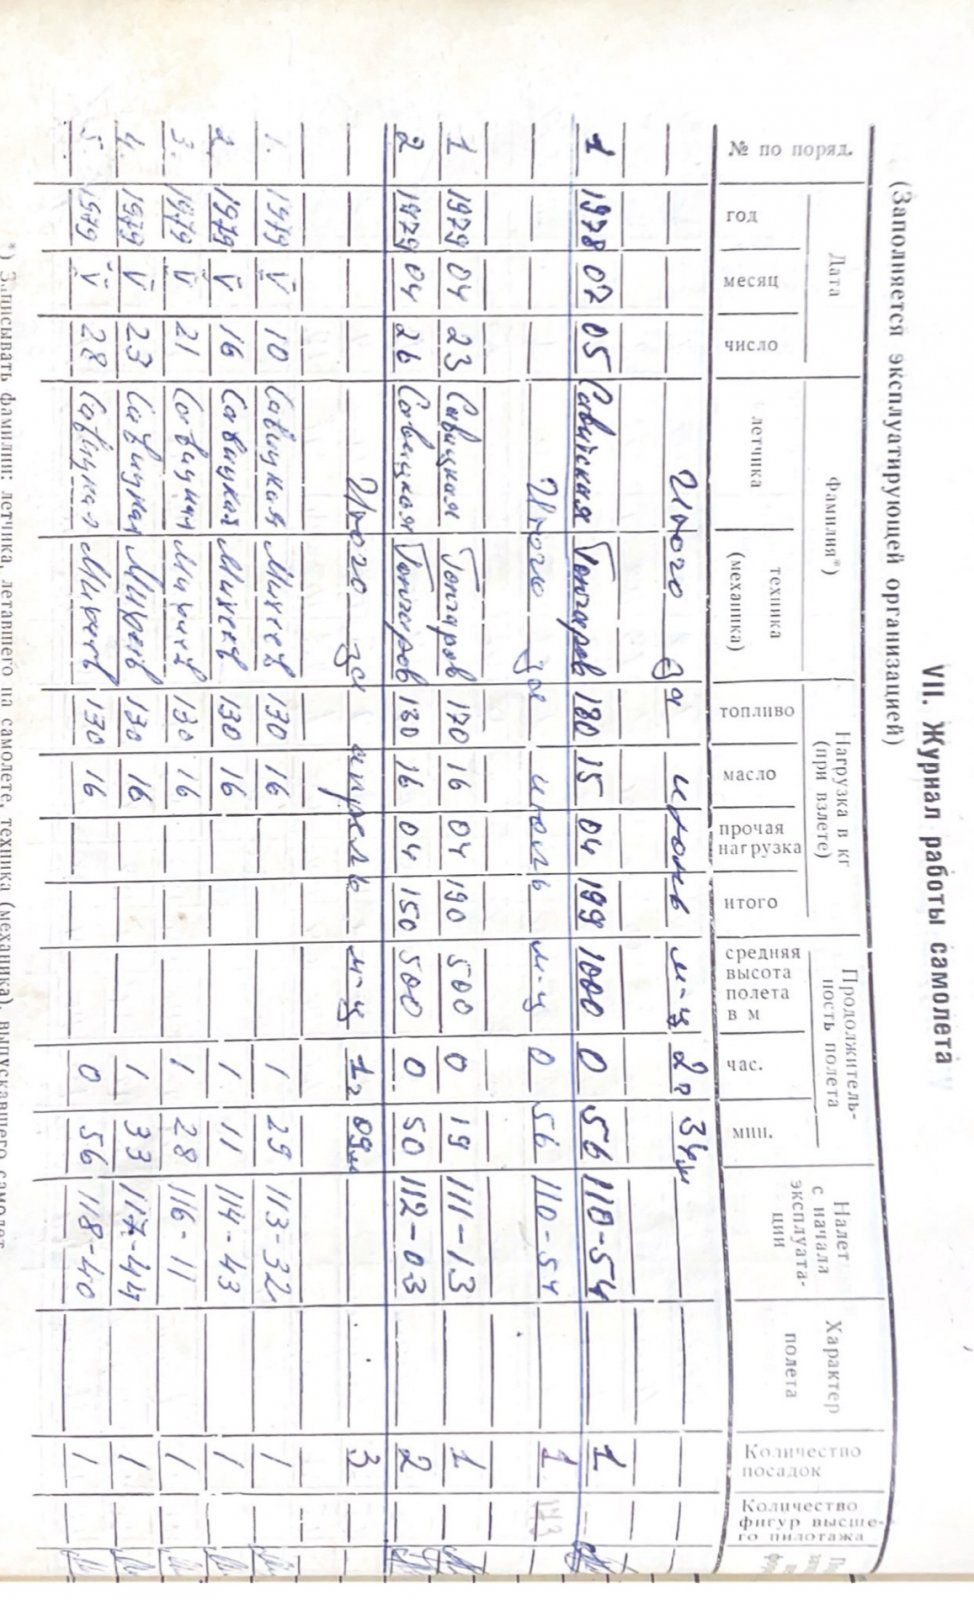 VII. Журнал работы самолета
(Заполняется эксплуатирующей организацией)
№ по поряд.
Дата
год
месяц
число
Фамилия*)
летчика
техника
(механика)
Нагрузка в кг
(при взлете)
топливо
масло
прочая
нагрузка
итого
средняя
высота
полета
в м
Продолжитель-
ность полета
час.
мин.
Налет
с начала
эксплуата-
ции
Характер
полета
Количество
посадок
Количество
фигур высше-
го пилотажа
Итого за июнь м-ц 2ч 34м
1 1978 07 05 Савицкая Гончаров 180 15 04 199 1000 0 56 110-54 1
Итого за июль м-ц 0 56 110-54 1
1 1979 04 23 Савицкая Гончаров 170 16 04 190 500 0 19 111-13 1
2 1979 04 26 Савицкая Гончаров 130 16 04 150 500 0 50 112-03 2
Итого за апрель м-ц 1ч 09м 3
1. 1979 V 10 Савицкая Михеев 130 16 1 29 113-32 1
2. 1979 V 16 Савицкая Михеев 130 16 1 11 114-43 1
3. 1979 V 21 Савицкая Михеев 130 16 1 28 116-11 1
4. 1979 V 23 Савицкая Михеев 130 16 1 33 117-44 1
5. 1979 V 28 Савицкая Михеев 130 16 0 56 118-40 1
*) Записывать фамилии: летчика, летавшего на самолете, техника (механика), выпускавшего самолет